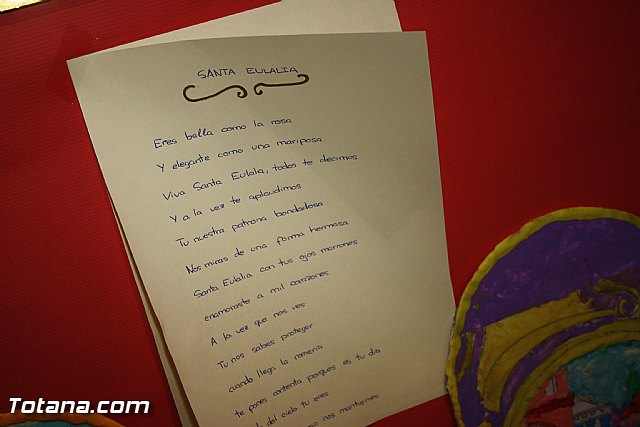 SANTA EULALIA
Eres bella como la rosa
Y elegante como una mariposa
Viva Santa Eulala, todos te decimos
Y a la vez te aplaudimos
Tu nuestra patrona bondadosa
Nos miras de una forma hermosa
Santa Eulalia con tus ojos marrones
enamoraste a mil corazones
A la vez que nos ves
Tu nos sabes proteger
cuando llega la romería
te pones contenta porques es tu dia
del cielo tu eres
nos mantienes
Totana.com